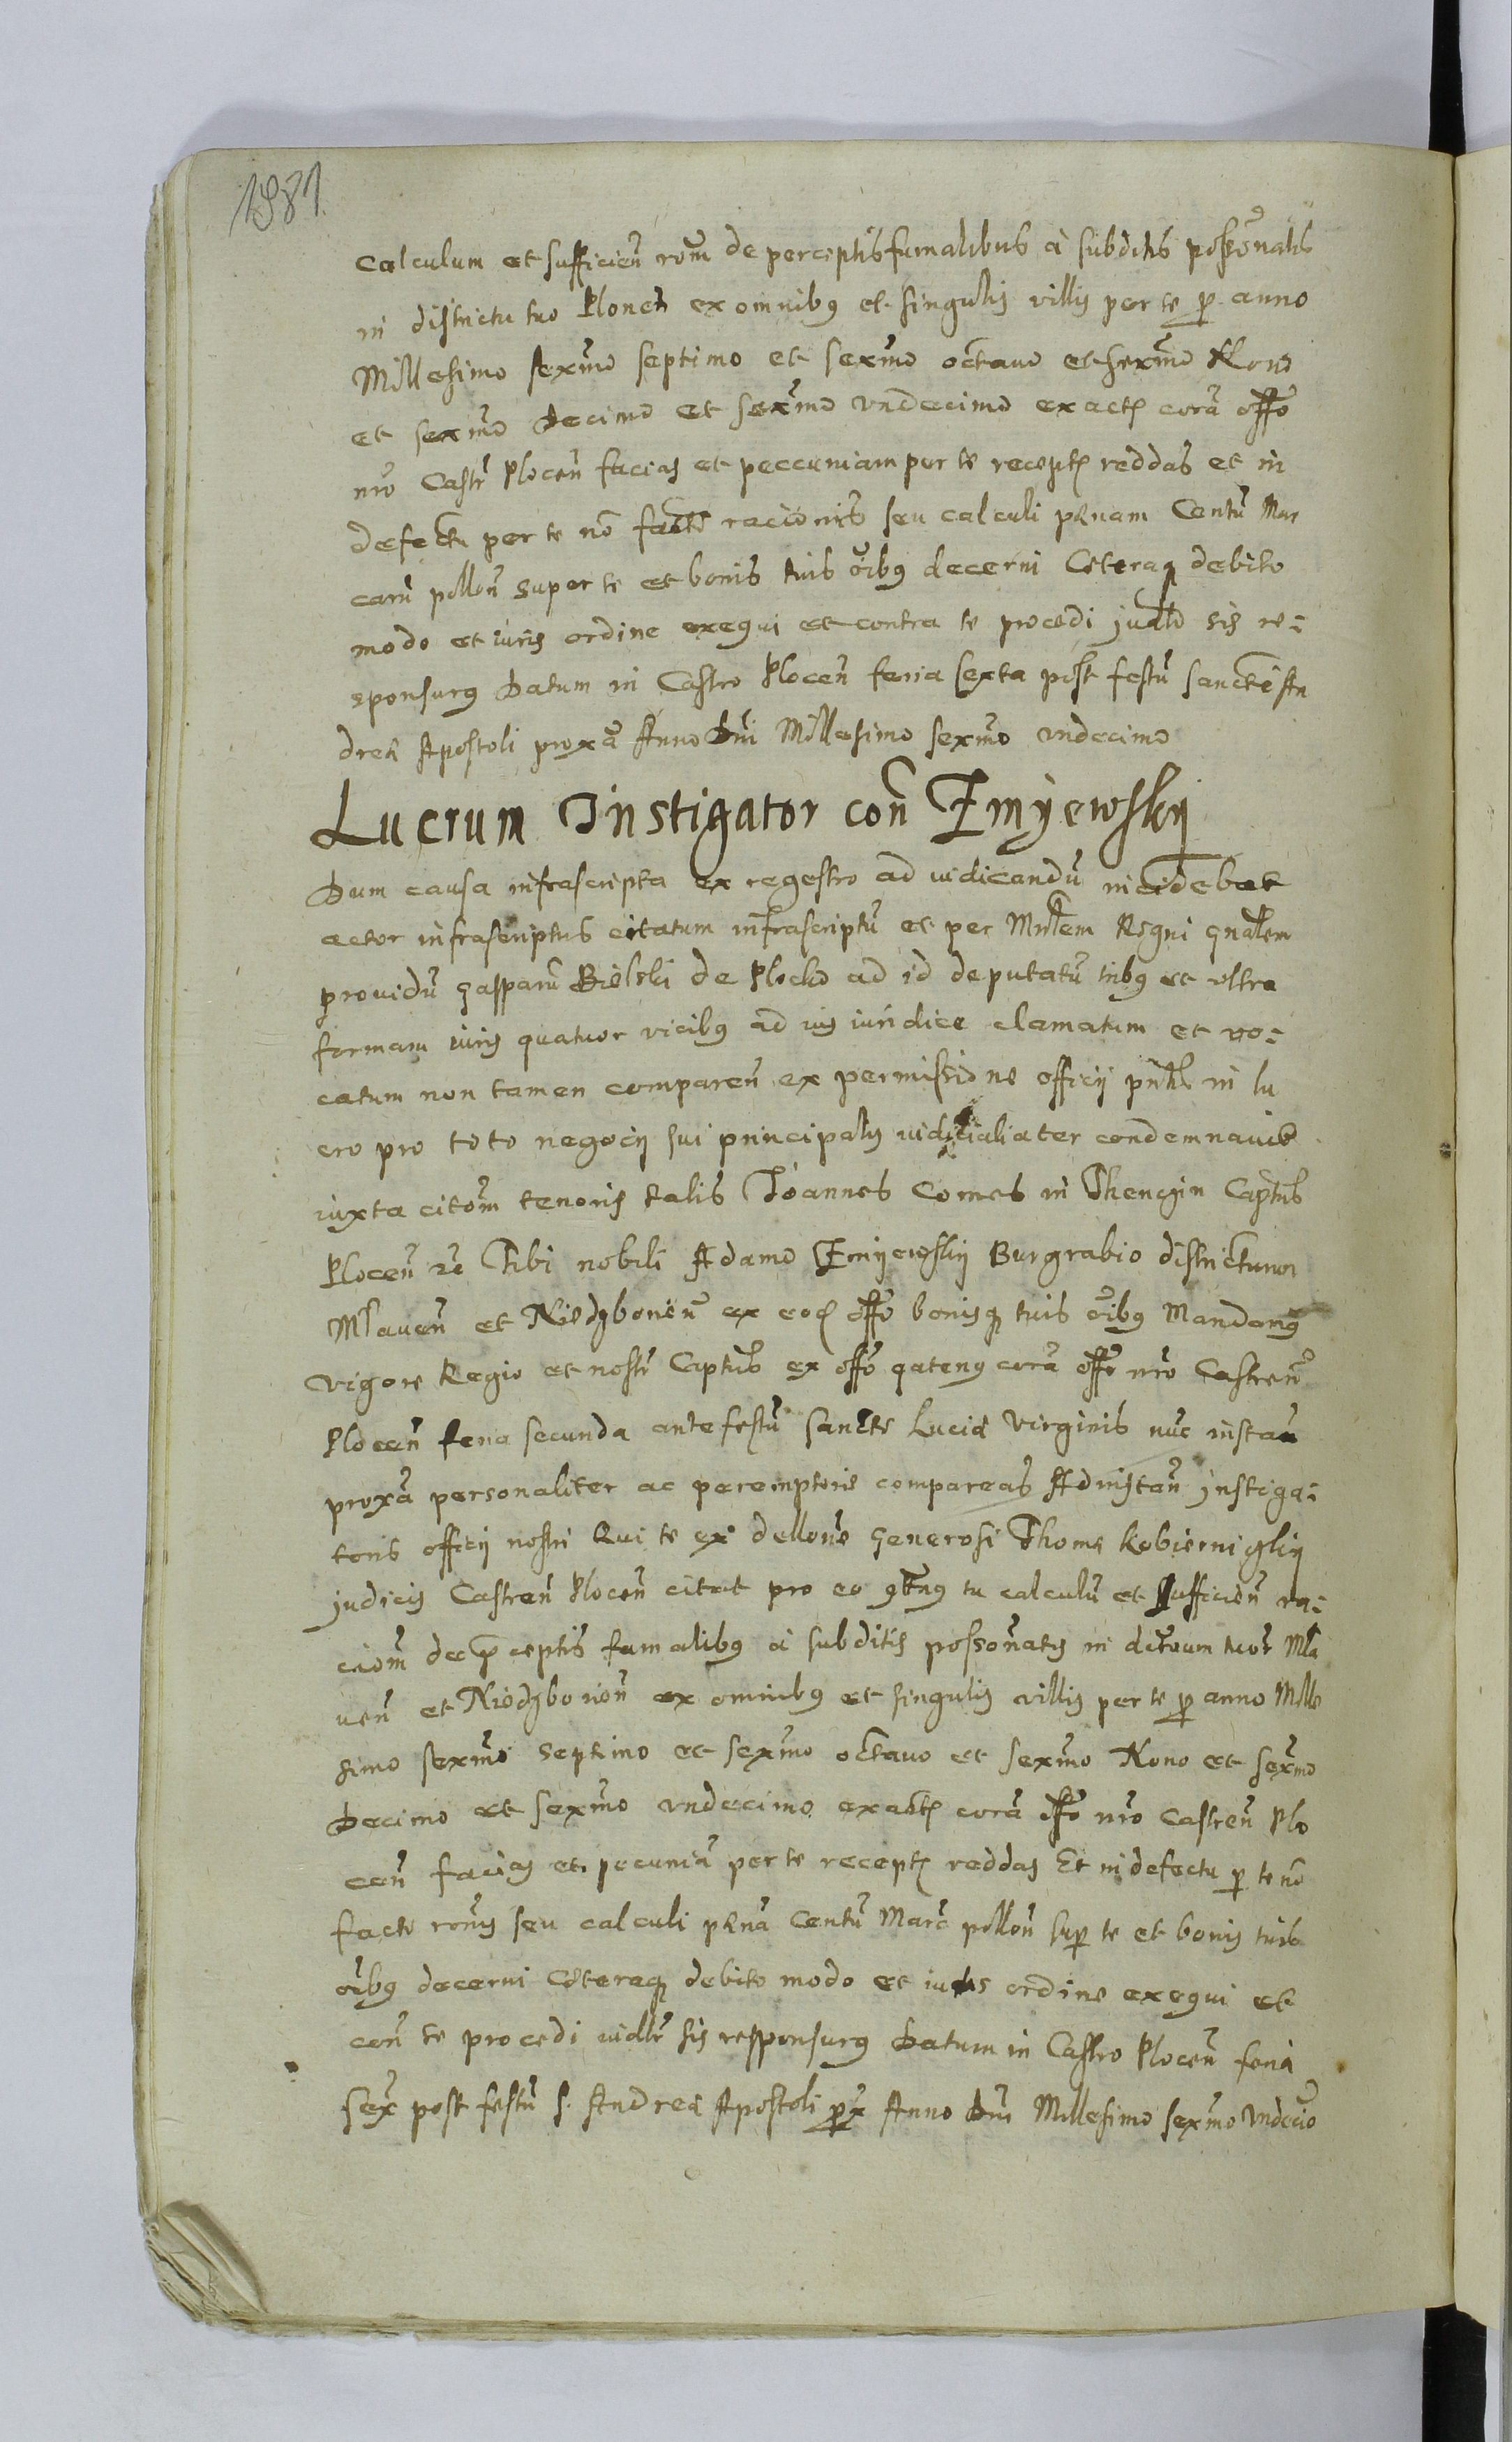 1981.
calculum et sufficien̄ rōm de perceptis fumalibus à subditis possōnatis
in districtu tuo Plonen̄ ex omnibꝰ et singulis villis per te p anno
Millesimo sexm̄o septimo et sexm̄o octauo et sexm̄o Nono
et sexm̄o decimo et sexm̄o vndecimo exact̄ corā offō
nr̄o Castr̄ Plocen̄ facias et peccuniam per te recept̄ reddas et in
defectu per te nō facte racionis seu calculi pęnam Centū Mar
carū pollon̄ super te et bonis tuis ōibꝰ decerni Ceteraq debito
modo et iuris ordine exequi et contra te procedi sis re:
sponsurꝰ Datum in Castro Plocen̄ feria sexta post festū sancti An
dreę Apostoli proxā Anno Dn̄i Millesimo sexm̄o vndecimo
Lucrum Instigator con̄ Zmijewskij
Dum causa infrascripta ex regestro ad iudicandū incidebat
actor infrascriptus citatum infrascriptū et per Mn̄rlem Regni gn̄alem
prouidū Gasparū Bielski de Plocko ad id deputatū tribꝰ et vltra
formam iuris quatuor vicibꝰ ad ius iuridice clamatum et vo:
catum non tamen comparen̄ ex permissione officij pn̄tis in lu
cro pro toto negocij sui principalis iudicialiater condemnauit
iuxta citōm tenoris talis Joannes Comes in Thenczin Capn̄s
Plocen̄ rc̄ Tibi nobili Adamo Zmijewskij Burgrabio districtuum
Mlauen̄ et Niedzbonen̄ ex eod offō bonisq tuis ōibꝰ Mandamꝰ
vigore Regio et nostr̄ Capn̄s ex offō qatenꝰ corā offō nr̄o Castren̄
Plocen̄ feria secunda ante festū sancte Lucię virginis nūc instan̄
proxā personaliter ac peremptorie compareas Ad instan̄ instiga:
toris officij nostri Qui te ex dellone generosi Thome Kobiernigkij
judicis Castren̄ Plocen̄ citat pro eo tu calculū et sufficien̄ ra:
ciōm de pceptis fumalibꝰ à subditis possonatis in tuor̄ Mla
uen̄ et Niedzbonen̄ ex omnibꝰ et singulis villis per te p anno Mille
simo sexm̄o septimo et sexm̄o octauo et sexm̄o Nono et sexm̄o
Decimo et sexm̄o vndecimo exact̄ corā offō nr̄o Castren̄ Plo
cen̄ facias et pecuniā per te recept̄ reddas Et in defectu p te nō
facte rōnis seu calculi pęnā Centū Marc̄ pollon̄ sup te et bonis tuis
ōibꝰ decerni Ceteraq debito modo et iuris ordine exequi et
con̄ te procedi sis responsurꝰ Datum in Castro Plocen̄ feria
sex̄ post festū S. Andreę Apostoli px̄ Anno Dn̄i Millesimo sexm̄o vndecīo